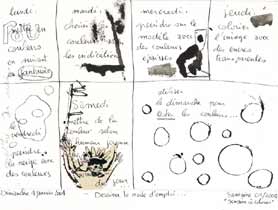 lundi:
Mettre en
couleurs
en suivant
sa fantaisie
mardi:
choisir
couleurs
les indications
mercredi:
peindre sur le
modèle avec
des couleurs
épaisses
jeudi:
colorier
l'image avec
des encres
transparentes
vendredi
peindre
la neige avec
des couleurs
Samedi
mettre de la
couleur selon
l'humeur
du jour
utiliser
le dimanche pour
les couleurs...
Dimanche 1 janvier 2001
Dessin le mode d'emploi...
Semaine 01/2001